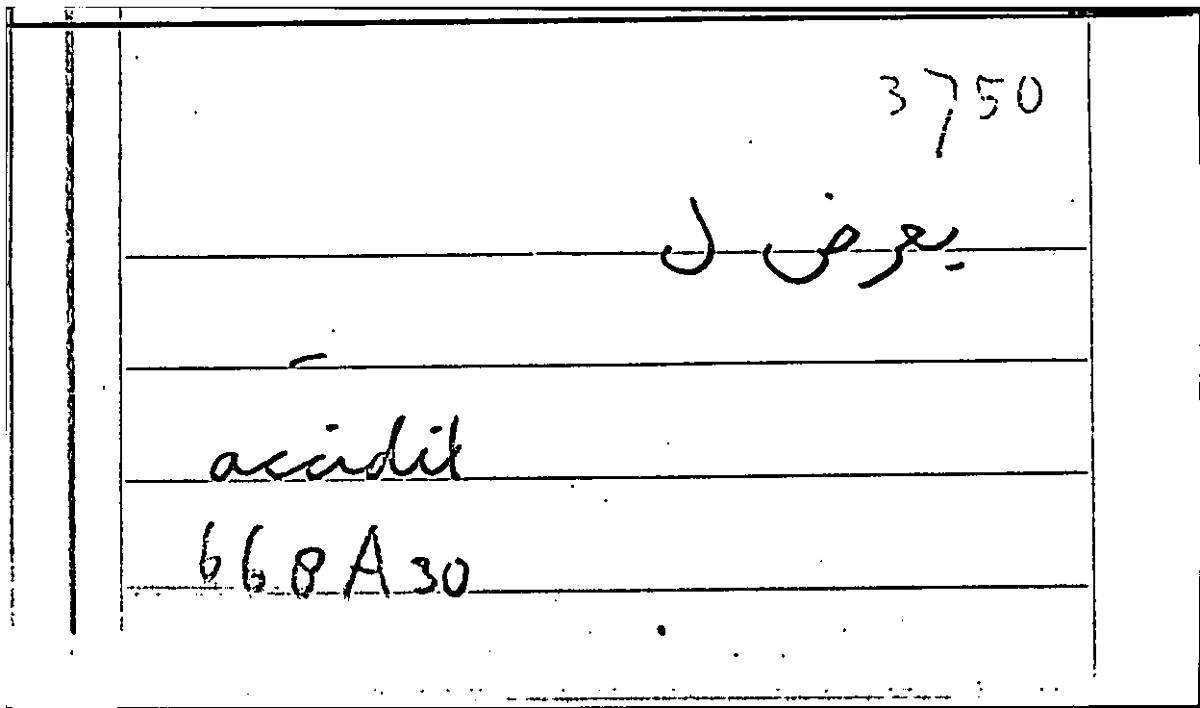 3750
يعرض ل
accidit
668A30